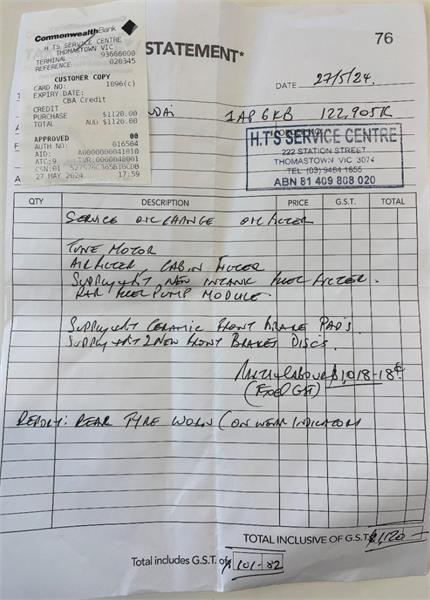 CommonwealthBank
H.TS SERVICE CENTRE
THOMASTOWN VIC
TERMINAL 93666000
REFERENCE 020345
CUSTOMER COPY
CARD NO: 1896(c)
EXPIRY DATE:
CBA Credit
CREDIT
PURCHASE $1120.00
TOTAL AUD $1120.00
APPROVED 00
AUTH NO: 016504
AID: A0000000041010
ATC:9 TVR:0000048001
CSN:01
27 MAY 2024 17:59
STATEMENT*
76
DATE 27/5/24.
1AP6KB 122,905K
H.T'S SERVICE CENTRE
222 STATION STREET
THOMASTOWN VIC 3074
TEL: (03) 9464 1655
ABN 81 409 808 020
QTY DESCRIPTION PRICE G.S.T. TOTAL
SERVICE OIL CHANGE OIL FILTER
TUNE MOTOR
AIR FILTER CABIN FILTER
SUPPLY & FIT NEW INTANK FUEL FILTER.
R&R FUEL PUMP MODULE.
SUPPLY & FIT CERAMIC FRONT BRAKE PADS.
SUPPLY & FIT 2 NEW FRONT BRAKES DISCS.
PARTS & LABOUR $1,018-18¢
(EXCL GST)
REPORT: REAR TYRE WORN (ON WEAR INDICATORS
TOTAL INCLUSIVE OF G.S.T. $1,120-
Total includes G.S.T. of $101-82